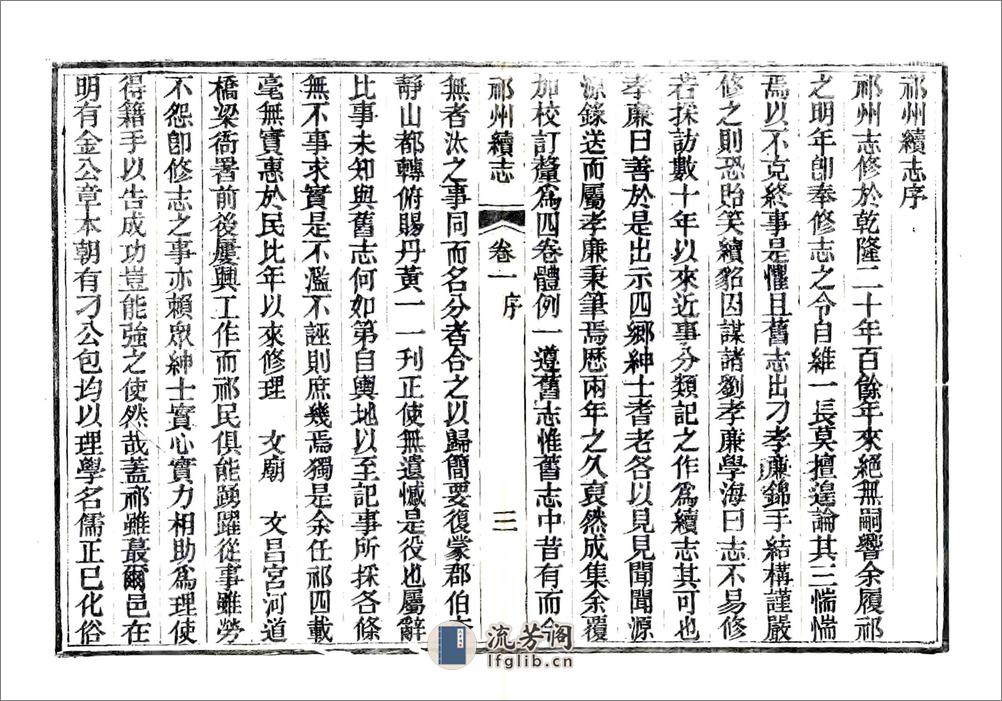 祁州續志序
祁州志修於乾隆二十年百餘年來絕無嗣響余履祁
之明年卽奉修志之令自維一長莫擅遑論其三惴惴
焉以不克終事是懼且舊志出刁孝廉錦手結構謹嚴
修之則恐貽笑續貂因謀諸劉孝廉學海曰志不易修
若採訪數十年以來近事分類記之作爲續志其可也
孝廉曰善於是出示四鄉紳士耆老各以見見聞聞源
源錄送而屬孝廉秉筆焉歷兩年之久裒然成集余覆
加校訂釐爲四卷體例一遵舊志惟舊志中昔有而今
祁州續志 卷一 序 三
無者汰之事同而名分者合之以歸簡要復蒙郡伯李
靜山都轉俯賜丹黃一一刊正使無遺憾是役也屬辭
比事未知與舊志何如第自輿地以至記事所採各條
無不事求實是不濫不誣則庶幾焉獨是余任祁四載
毫無實惠於民比年以來修理 文廟 文昌宮河道
橋梁衙署前後屢興工作而祁民俱能踴躍從事雖勞
不怨卽修志之事亦賴眾紳士實心實力相助爲理使
得籍手以告成功豈能強之使然哉蓋祁雖蕞爾邑在
明有金公章本朝有刁公包均以理學名儒正己化俗
流芳阁
lfglib.cn